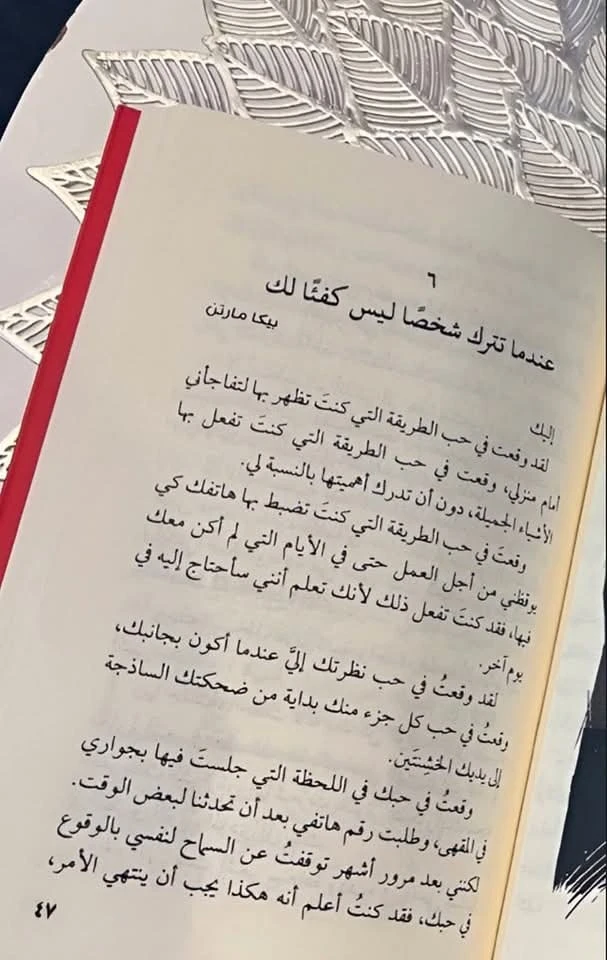 ٦
عندما تترك شخصًا ليس كفئًا لك
بيكا مارتن
إليك
لقد وقعت في حب الطريقة التي كنتَ تظهر بها لتفاجأني
أمام منزلي، وقعت في حب الطريقة التي كنتَ تفعل بها
الأشياء الجميلة، دون أن تدرك أهميتها بالنسبة لي.
وقعتَ في حب الطريقة التي كنتَ تضبط بها هاتفك كي
يوقظني من أجل العمل حتى في الأيام التي لم أكن معك
فيها، فقد كنتَ تفعل ذلك لأنك تعلم أنني سأحتاج إليه في
يوم آخر.
لقد وقعتُ في حب نظرتك إليَّ عندما أكون بجانبك،
وقعتُ في حب كل جزء منك بداية من ضحكتك الساذجة
إلى يديك الخَشِنتَين.
وقعتُ في حبك في اللحظة التي جلستَ فيها بجواري
في المقهى، وطلبت رقم هاتفي بعد أن تحدثنا لبعض الوقت.
لكنني بعد مرور أشهر توقفتُ عن السماح لنفسي بالوقوع
في حبك، فقد كنتُ أعلم أنه هكذا يجب أن ينتهي الأمر،
٤٧